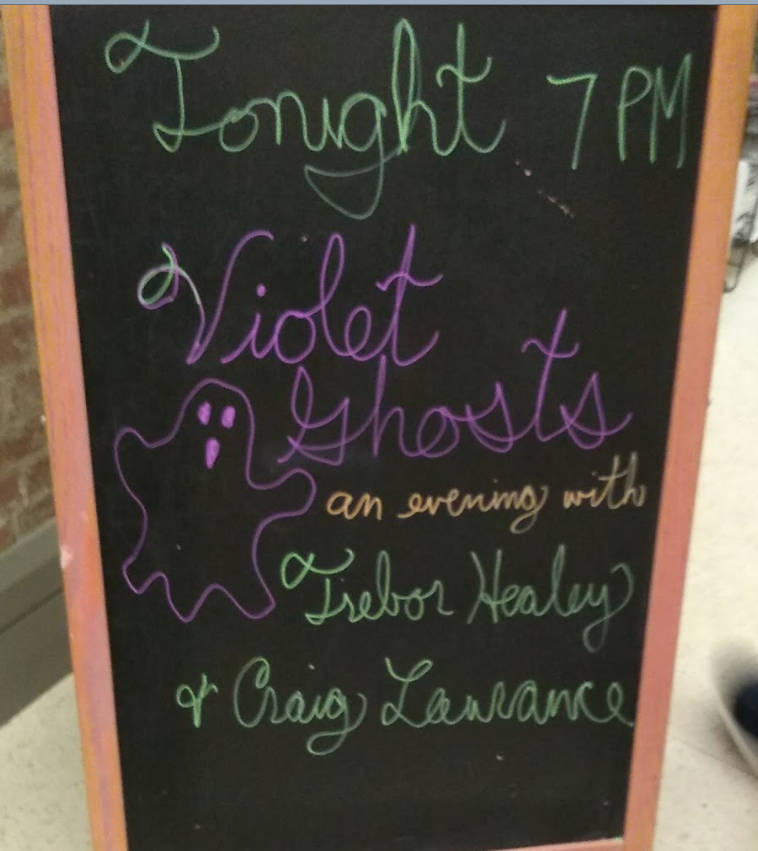 Tonight 7 PM
Violet
Ghosts
an evening with
Trebor Healey
& Craig Laurance